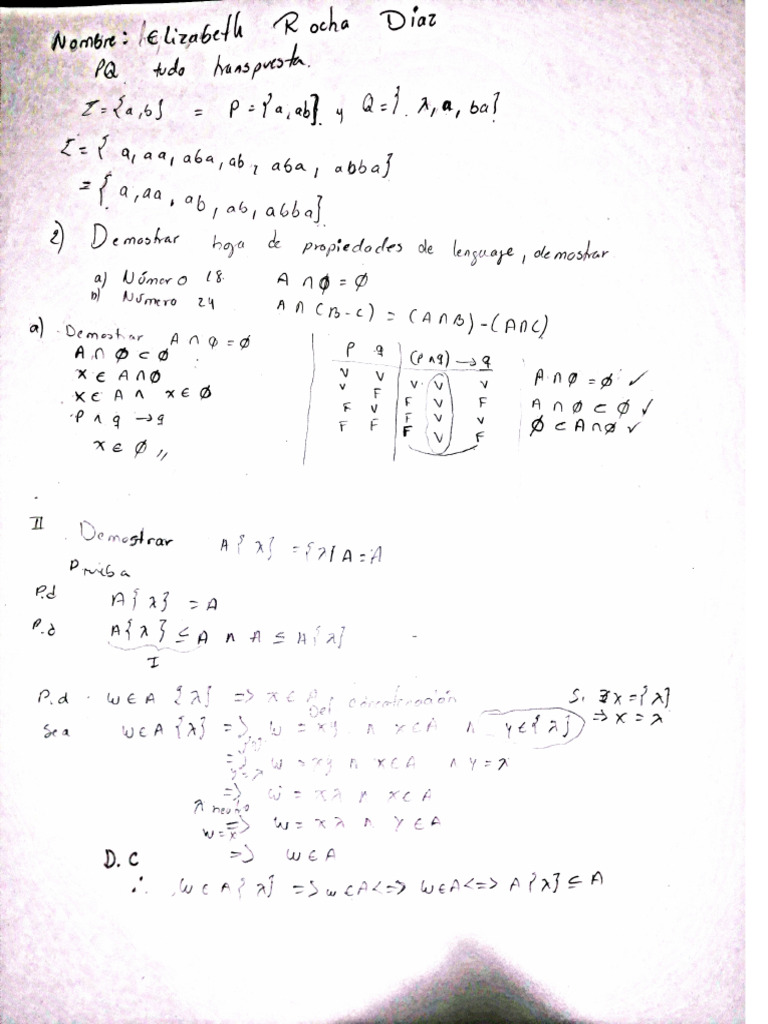 Nombre: Elizabeth Rocha Diaz
PQ tudo transpuesta.
Σ={a,b} = P={a,ab} y Q={λ, a, ba}
Σ={ a, aa, aba, ab, aba, abba}
={ a, aa, ab, ab, abba}
2) Demostrar hoja de propiedades de lenguaje, demostrar
a) Número 18. A ∩ ∅ = ∅
b) Número 24 A ∩ (B - C) = (A∩B) - (A∩C)
a) Demostrar A ∩ ∅ = ∅
A ∩ ∅ ⊂ ∅
x ∈ A∩∅
x ∈ A ∧ x ∈ ∅
P ∧ q → q
x ∈ ∅ //
P q (p∧q) → q
V V V V V
V F F V F
F V F V V
F F F V F
A ∩ ∅ = ∅ ✓
A ∩ ∅ ⊂ ∅ ✓
∅ ⊂ A∩∅ ✓
II Demostrar A{λ} = {λ}A = A
Prueba
P.d A{λ} = A
P.d A{λ} ⊆ A ∧ A ⊆ A{λ}
I
P.d w∈A {λ} => x∈A
Def concatenación
Si x={λ}
=> x = λ
Sea w∈A{λ} => w = xy ∧ x∈A ∧ y∈{λ}
=> w = xy ∧ x∈A ∧ y=λ
y=λ
=> w = xλ ∧ x∈A
λ neutro
=> w = xλ ∧ y∈A
w=x
=> w∈A
D.C
∴ w∈A{λ} => w∈A <=> w∈A <=> A{λ} ⊆ A